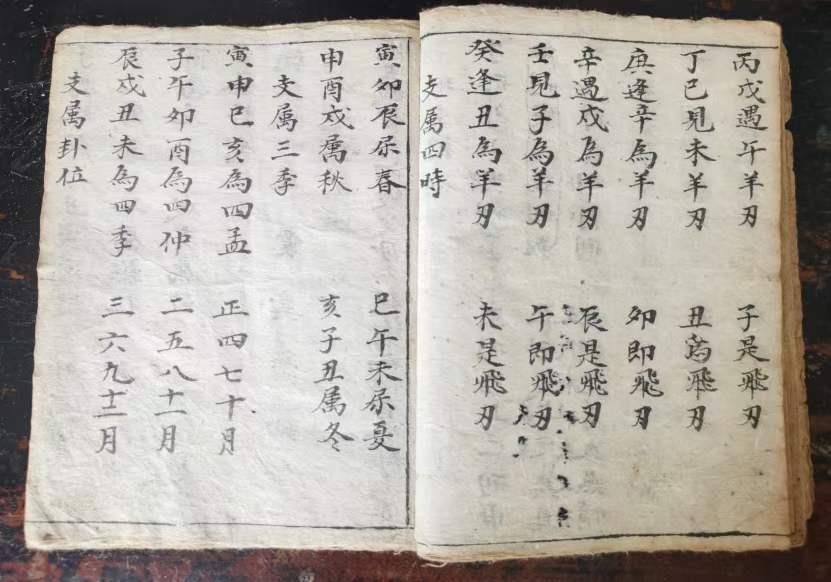 丙戊遇午羊刃 子是飛刃
丁巳見未羊刃 丑為飛刃
庚逢辛為羊刃 卯即飛刃
辛遇戌為羊刃 辰是飛刃
壬見子為羊刃 午即飛刃
癸逢丑為羊刃 未是飛刃
支属四時
寅卯辰属春 巳午未属夏
申酉戌属秋 亥子丑属冬
支属三季
寅申巳亥為四孟 正四七十月
子午卯酉為四仲 二五八十一月
辰戌丑未為四季 三六九十二月
支属卦位